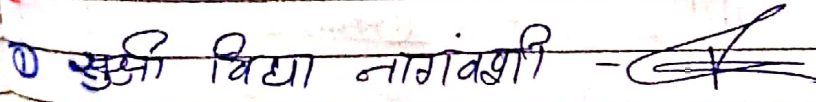 ① सुश्री विद्या नागवंशी -